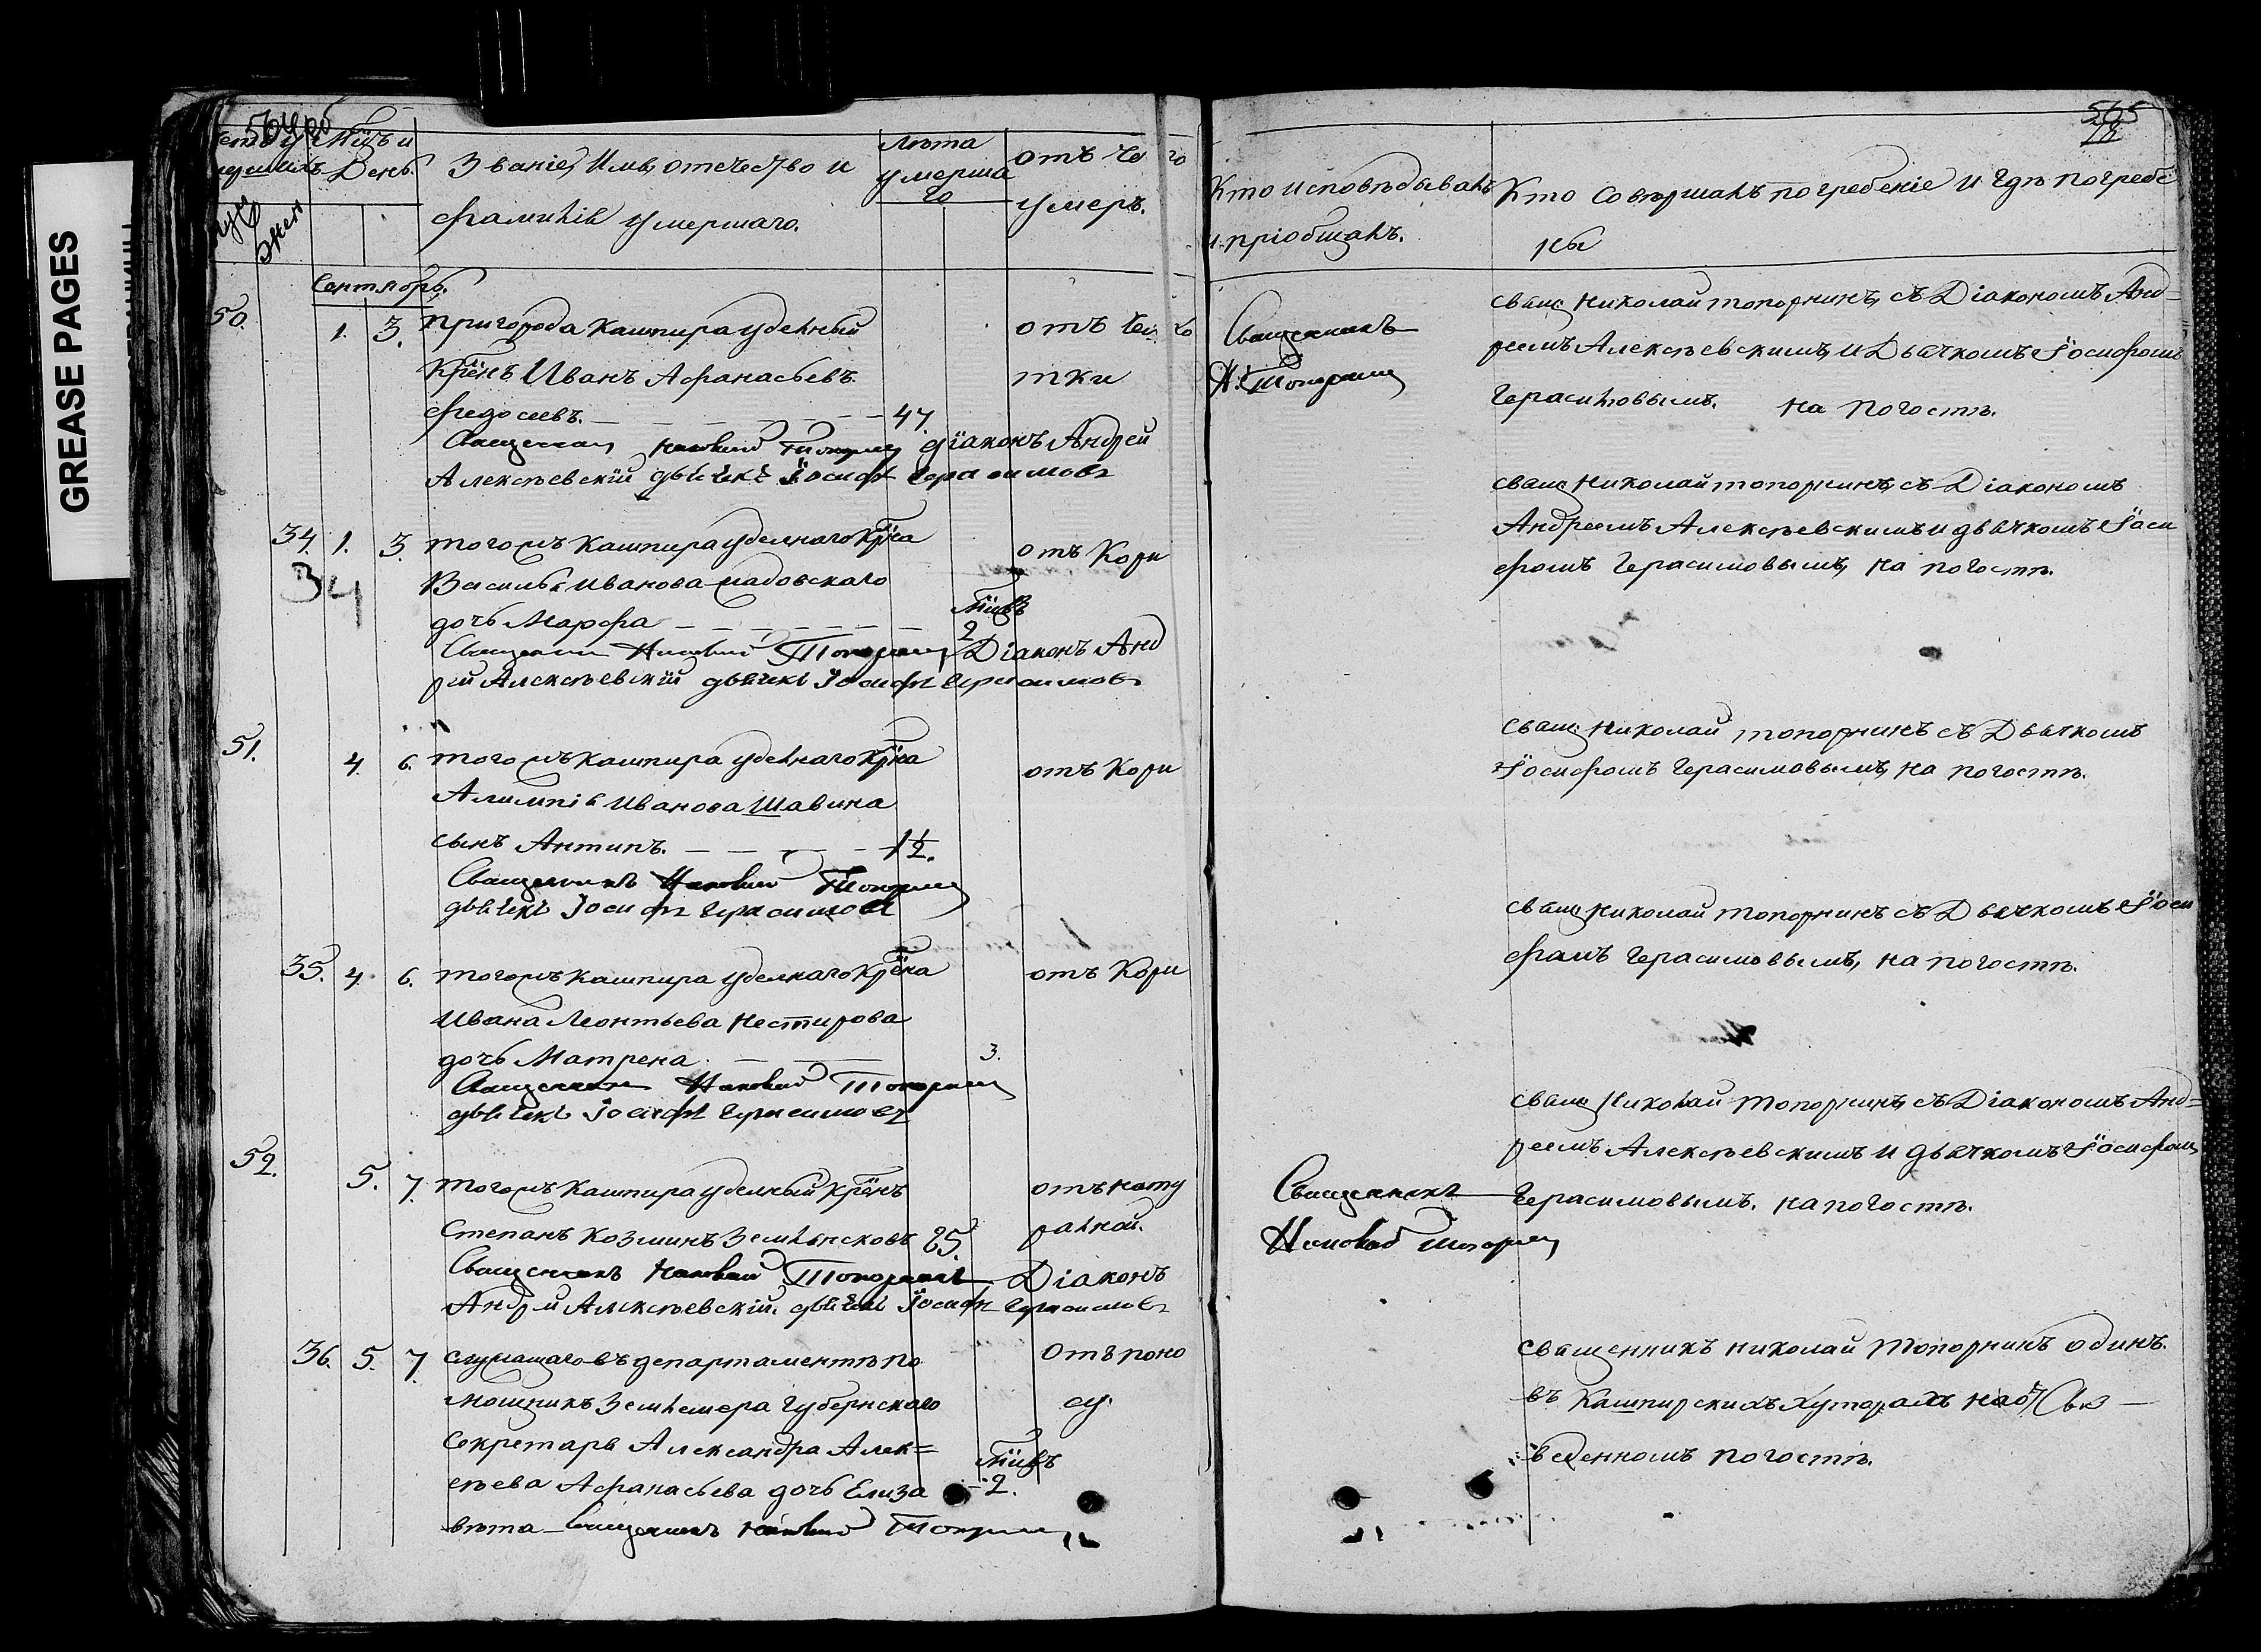 GREASE PAGES
565
Мцъ и
День.
муж
жен
Званіе, Имя, отечество и
фамилія умершаго.
лѣта
умерша
го
отъ чего
умеръ.
Кто исповѣдывалъ
и пріобщалъ.
Кто совершалъ погребеніе и гдѣ погребе
ны
Сентябрь.
50.
1. 3.
пригорода Кашпира удѣльный
крѣнъ Иванъ Афанасьевъ
федосеевъ.
47.
отъ чахо
тки
Священникъ Николай Топорнин діаконъ Андрей
Алексѣевскій дьячекъ Іосифъ Герасимовъ
Священникъ
Н. Топорнин
свящ Николай топорнинъ, съ Діакономъ Анд=
реемъ Алексѣевскимъ, и Дьячкомъ Іосифомъ
Герасимовымъ. на погостѣ.
34. 1. 3.
34
тогожъ Кашпира уделнаго крѣна
Василья Иванова Садовскаго
дочь Марфа
Мцъ
2
отъ Кори
Священник Николай Топорнин Діаконъ Анд
рей Алексѣевскій дьячекъ Іосифъ Герасимовъ
свящ Николай топорнинъ, съ Діакономъ
Андреемъ Алексѣевскимъ и дьячкомъ Іоси
фомъ Герасимовымъ, на погостѣ.
51.
4. 6.
тогожъ Кашпира удѣлнаго крѣна
Алимпія Иванова Шавина
сынъ Антипъ.
1½.
отъ Кори
Священникъ Николай Топорнин
дьячекъ Іосифъ Герасимовъ
свящ Николай топорнинъ съ Дьячкомъ
Іосифомъ Герасимовымъ, на погостѣ.
35. 4. 6.
тогожъ Кашпира уделнаго крѣна
Ивана Леонтьева Нестирова
дочь Матрена
3.
отъ Кори
Священник Николай Топорнин
дьячекъ Іосифъ Герасимовъ
свящ Николай топорнинъ съ Дьячкомъ Іоси
фомъ Герасимовымъ, на погостѣ.
52.
5. 7.
тогожъ Кашпира уделный крѣнъ
Степанъ Козминъ Землянсковъ
25.
отъ нату
ралной.
Священникъ Николай Топорнинъ Діаконъ
Андрей Алексѣевскій. дьячекъ Іосифъ Герасимовъ
Священникъ
Николай Топорнин
свящ Николай топорнинъ, съ Діакономъ Анд=
реемъ Алексѣевскимъ и дьячкомъ Іосифом
Герасимовымъ. на погостѣ.
36. 5. 7.
служащаго въ департаментѣ по
мощникъ Землемера Губернскаго
Секретаря Александра Алек=
сѣева Афанасьева дочь Елиза
вѣта
Мцъ
2.
отъ поно
су.
Священникъ Николай Топорнин
священникъ Николай топорнинъ одинъ.
въ Кашпирскихъ Хуторахъ на
веденномъ погостѣ.